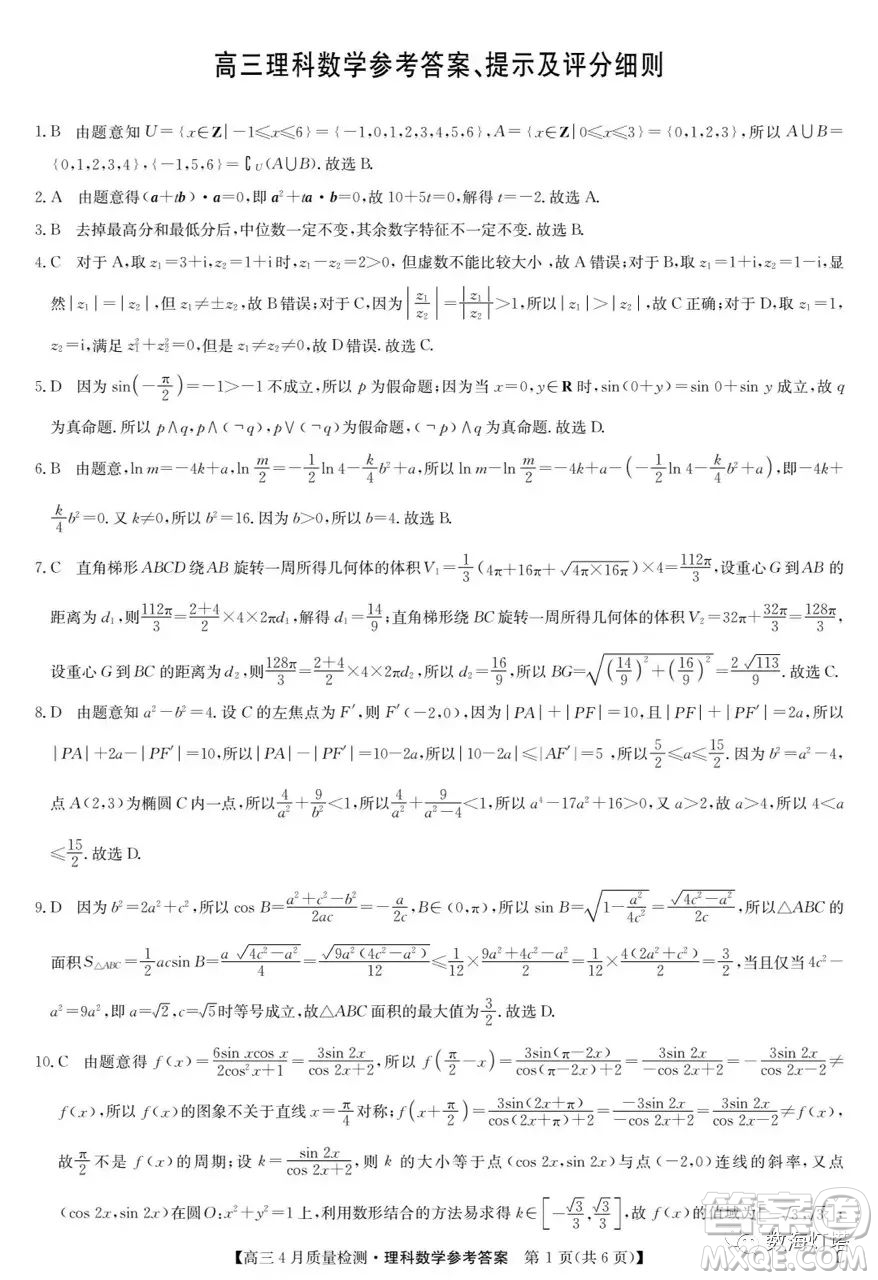 高三理科数学参考答案、提示及评分细则
1. B 由题意知 U={x∈Z|-1≤x≤6}={-1,0,1,2,3,4,5,6},A={x∈Z|0≤x≤3}={0,1,2,3},所以 A∪B=
{0,1,2,3,4},{-1,5,6}=∁U(A∪B).故选 B.
2. A 由题意得(a+tb)·a=0,即 a²+ta·b=0,故 10+5t=0,解得 t=-2.故选 A.
3. B 去掉最高分和最低分后,中位数一定不变,其余数字特征不一定不变.
4. C 对于 A,取 z₁=3+i,z₂=1+i 时,z₁-z₂=2>0,但虚数不能比较大小,故 A 错误;对于 B,取 z₁=1+i,z₂=1-i,显
然|z₁|=|z₂|,但 z₁≠±z₂,故 B 错误;对于 C,因为|z₁/z₂|=|z₁|/|z₂|>1,所以|z₁|>|z₂|,故 C 正确;对于 D,取 z₁=1,
z₂=i,满足 z₁²+z₂²=0,但是 z₁≠z₂≠0,故 D 错误.故选 C.
5. D 因为 sin(-π/2)=-1>-1 不成立,所以 p 为假命题;因为当 x=0,y∈R 时,sin(0+y)=sin 0+sin y 成立,故 q
为真命题.所以 p∧q,p∧(¬q),p∨(¬q)为假命题,(¬p)∧q 为真命题.故选 D.
6. B 由题意,ln m=-4k+a,ln m/2=-1/2 ln 4-k/4 b²+a,所以 ln m-ln m/2=-4k+a-(-1/2 ln 4-k/4 b²+a),即-4k+
k/4 b²=0.又 k≠0,所以 b²=16.因为 b>0,所以 b=4.故选 B.
7. C 直角梯形 ABCD 绕 AB 旋转一周所得几何体的体积 V₁=1/3(4π+16π+√(4π×16π))×4=112π/3,设重心 G 到 AB 的
距离为 d₁,则 112π/3=(2+4)/2×4×2πd₁,解得 d₁=14/9;直角梯形绕 BC 旋转一周所得几何体的体积 V₂=32π+32π/3=128π/3,
设重心 G 到 BC 的距离为 d₂,则 128π/3=(2+4)/2×4×2πd₂,所以 d₂=16/9,所以 BG=√((14/9)²+(16/9)²)=2√113/9.故选 C.
8. D 由题意知 a²-b²=4.设 C 的左焦点为 F′,则 F′(-2,0),因为|PA|+|PF|=10,且|PF|+|PF′|=2a,所以
|PA|+2a-|PF′|=10,所以|PA|-|PF′|=10-2a,所以|10-2a|≤|AF′|=5,所以 5/2≤a≤15/2.因为 b²=a²-4,
点 A(2,3)为椭圆 C 内一点,所以 4/a²+9/b²<1,所以 4/a²+9/(a²-4)<1,所以 a⁴-17a²+16>0,又 a>2,故 a>4,所以 4<a
≤15/2.故选 D.
9. D 因为 b²=2a²+c²,所以 cos B=(a²+c²-b²)/2ac=-a/2c,B∈(0,π),所以 sin B=√(1-a²/4c²)=√(4c²-a²)/2c,所以△ABC 的
面积 S△ABC=1/2 acsin B=a√(4c²-a²)/4=√(9a²(4c²-a²))/12≤1/12×(9a²+4c²-a²)/2=1/12×4(2a²+c²)/2=3/2,当且仅当 4c²-
a²=9a²,即 a=√2,c=√5时等号成立,故△ABC 面积的最大值为 3/2.故选 D.
10. C 由题意得 f(x)=6sin xcos x/(2cos²x+1)=3sin 2x/(cos 2x+2),所以 f(π/2-x)=3sin(π-2x)/(cos(π-2x)+2)=3sin 2x/(-cos 2x+2)=-3sin 2x/(cos 2x-2)≠
f(x),所以 f(x)的图象不关于直线 x=π/4 对称;f(x+π/2)=3sin(2x+π)/(cos(2x+π)+2)=-3sin 2x/(-cos 2x+2)=3sin 2x/(cos 2x-2)≠f(x),
故 π/2 不是 f(x)的周期;设 k=sin 2x/(cos 2x+2),则 k 的大小等于点(cos 2x,sin 2x)与点(-2,0)连线的斜率,又点
(cos 2x,sin 2x)在圆 O:x²+y²=1 上,利用数形结合的方法易求得 k∈[-√3/3,√3/3],故 f(x)的值域为
【高三 4 月质量检测·理科数学参考答案 第 1 页(共 6 页)】
数海灯塔